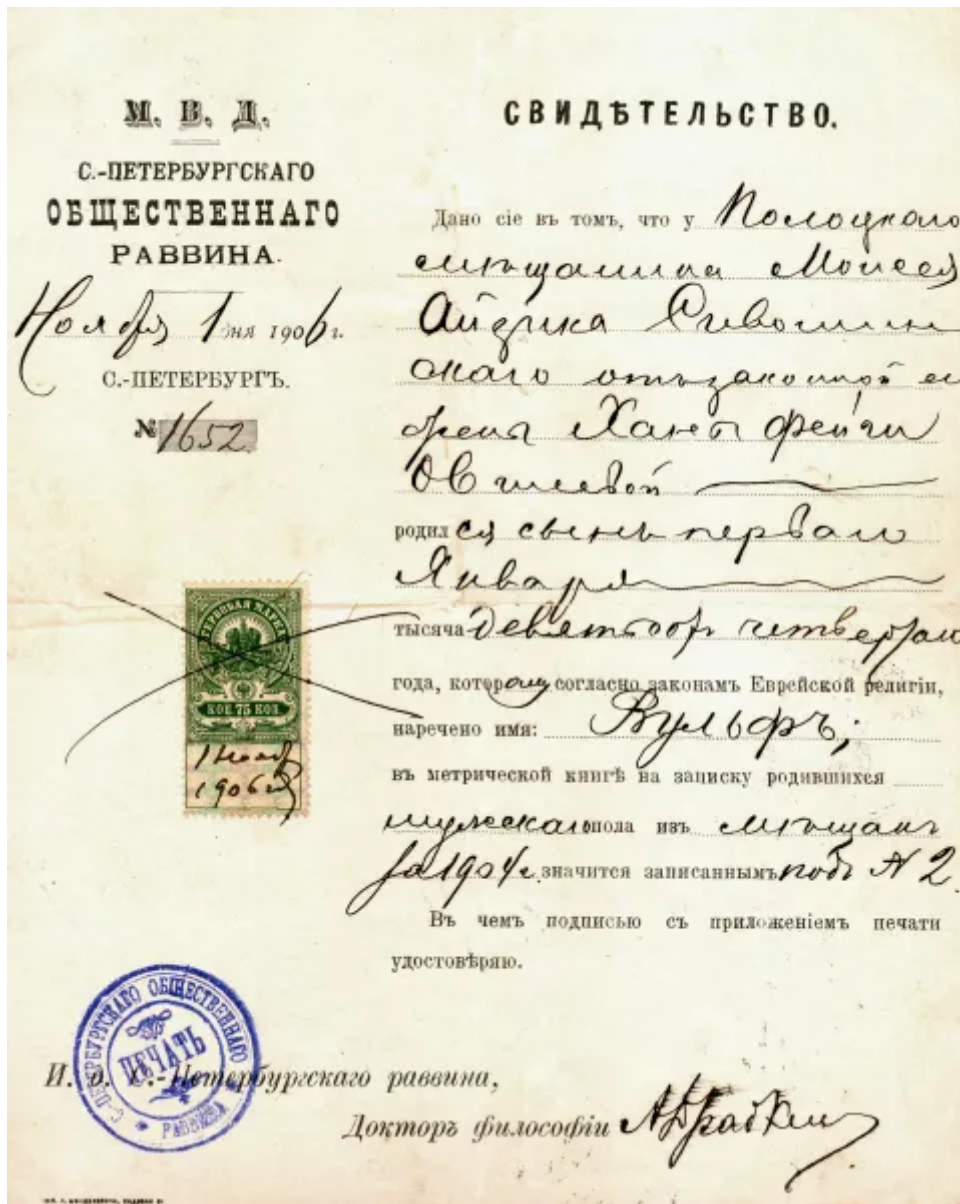 М. В. Д.
С.-ПЕТЕРБУРГСКАГО
ОБЩЕСТВЕННАГО
РАВВИНА.
Ноября 1 дня 1906 г.
С.-ПЕТЕРБУРГЪ.
№ 1652
СВИДѢТЕЛЬСТВО.
Дано сіе въ томъ, что у Полоцкаго
мѣщанина Моисея
Айзика
скаго отъ законной
Ханы Фейги
родился сынъ перваго
Января
тысяча девятьсотъ четвертаго
года, которому согласно законамъ Еврейской религіи,
наречено имя: Вульфъ;
въ метрической книгѣ на записку родившихся
мужскаго пола изъ мѣщанъ
за 1904 г. значится записаннымъ подъ № 2.
Въ чемъ подписью съ приложеніемъ печати
удостовѣряю.
ГЕРБОВАЯ МАРКА
КОП. 75 КОП.
1 нояб
1906 г.
С-ПЕТЕРБУРГСКАГО ОБЩЕСТВЕННАГО РАВВИНА
ПЕЧАТЬ
И. д. С.-Петербургскаго раввина,
Докторъ философіи